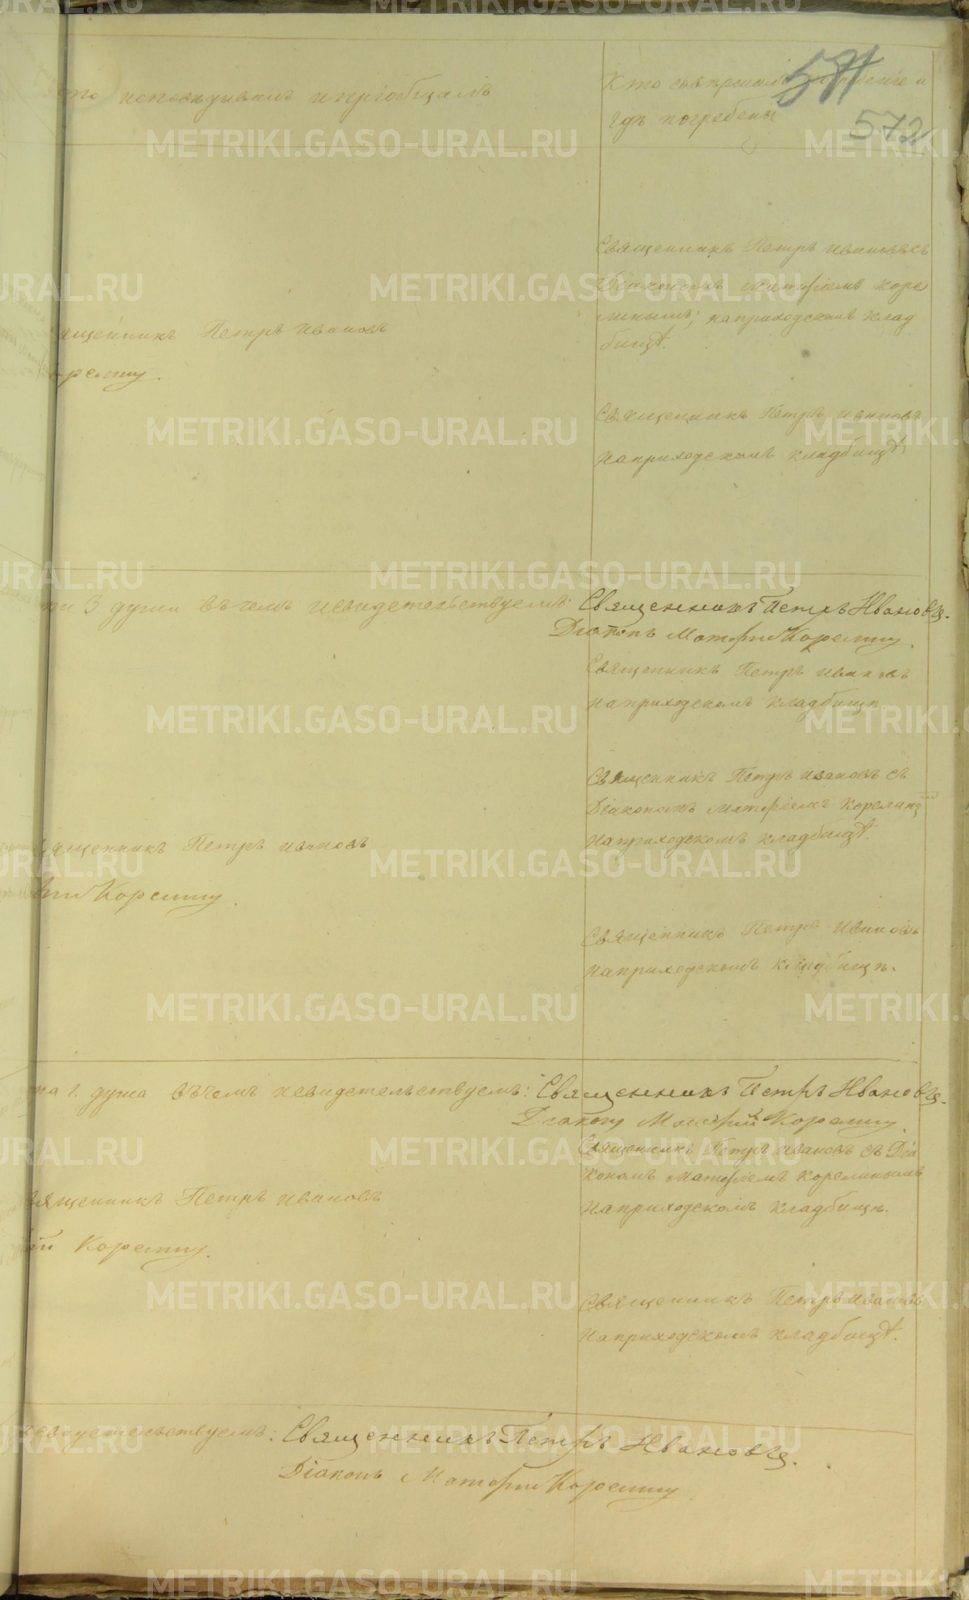 исповедывалъ и пріобщалъ
Кто совершалъ погребеніе и
гдѣ погребены
571
572
Священникъ Петръ Ивановъ съ
Діакономъ Матфіемъ Коре
линымъ; на приходскомъ клад
бищѣ.
ященникъ Петръ Ивановъ
Священникъ Петръ Ивановъ
на приходскомъ кладбищѣ
3 души въ чемъ и свидетельствуемъ: Священникъ Петръ Ивановъ.
Діаконъ Матфій Корелинъ.
Священникъ Петръ Ивановъ
на приходскомъ кладбищѣ.
Священникъ Петръ Ивановъ съ
Діакономъ Матфіемъ
на приходскомъ кладбищѣ
ященникъ Петръ Ивановъ
Корелинъ.
Священникъ Петръ Ивановъ
на приходскомъ кладбищѣ.
1. душа въ чемъ и свидетельствуемъ: Священникъ Петръ Ивановъ.
Діаконъ Матфій Корелинъ.
Священникъ Петръ Ивановъ съ Діа
кономъ Матфіемъ Корелинымъ
на приходскомъ кладбищѣ.
вященникъ Петръ Ивановъ
ій Корелинъ.
Священникъ Петръ Ивановъ
на приходскомъ кладбищѣ.
свидетельствуемъ: Священникъ Петръ Ивановъ.
Діаконъ Матфій Корелинъ
METRIKI.GASO-URAL.RU